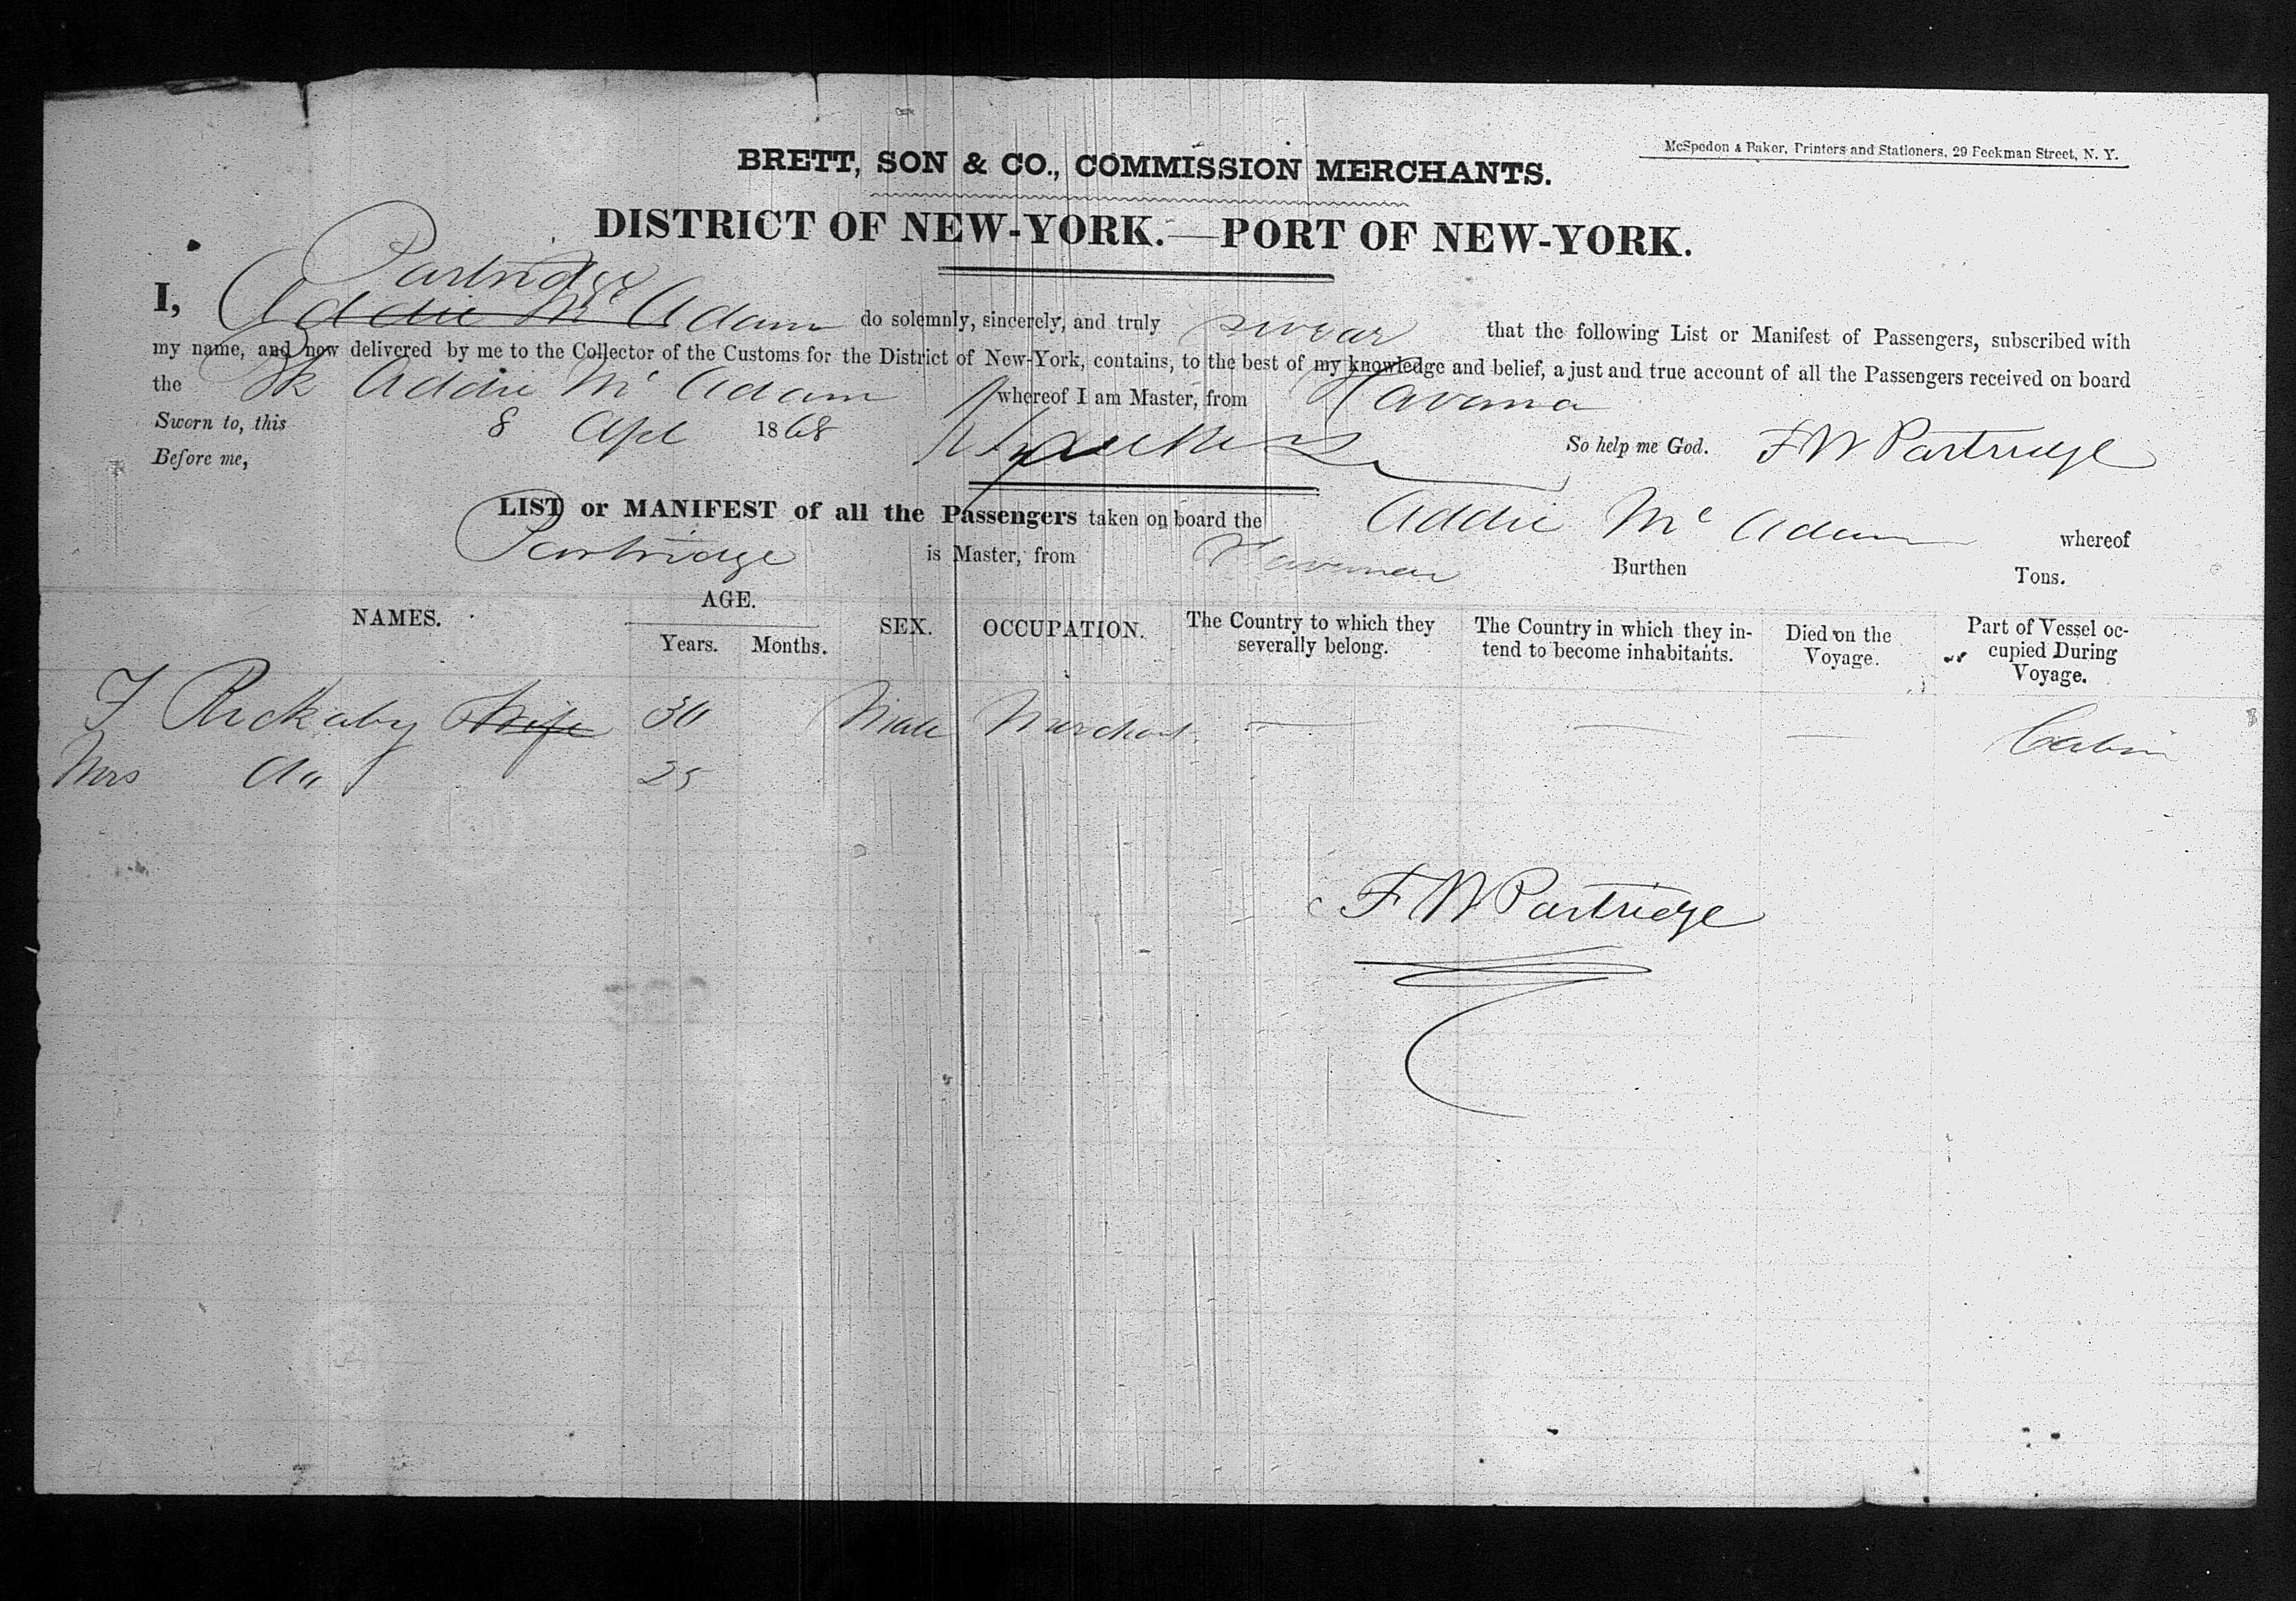 McSpedon & Baker, Printers and Stationers, 29 Beekman Street, N. Y.
BRETT, SON & CO., COMMISSION MERCHANTS.
DISTRICT OF NEW-YORK.—PORT OF NEW-YORK.
Partridge
I, Addie Mc Adam do solemnly, sincerely, and truly swear that the following List or Manifest of Passengers, subscribed with
my name, and now delivered by me to the Collector of the Customs for the District of New-York, contains, to the best of my knowledge and belief, a just and true account of all the Passengers received on board
the Bk Addie Mc Adam whereof I am Master, from Havana
Sworn to, this 8 Apl 1868
So help me God. F W Partridge
Before me,
LIST or MANIFEST of all the Passengers taken on board the Addie Mc Adam whereof
Partridge is Master, from Havana Burthen Tons.
NAMES. AGE. Years. Months. SEX. OCCUPATION. The Country to which they severally belong. The Country in which they intend to become inhabitants. Died on the Voyage. Part of Vessel occupied During Voyage.
F Rickaby Wife 30 Male Merchant — — — Cabin
Mrs Do 25
F W Partridge